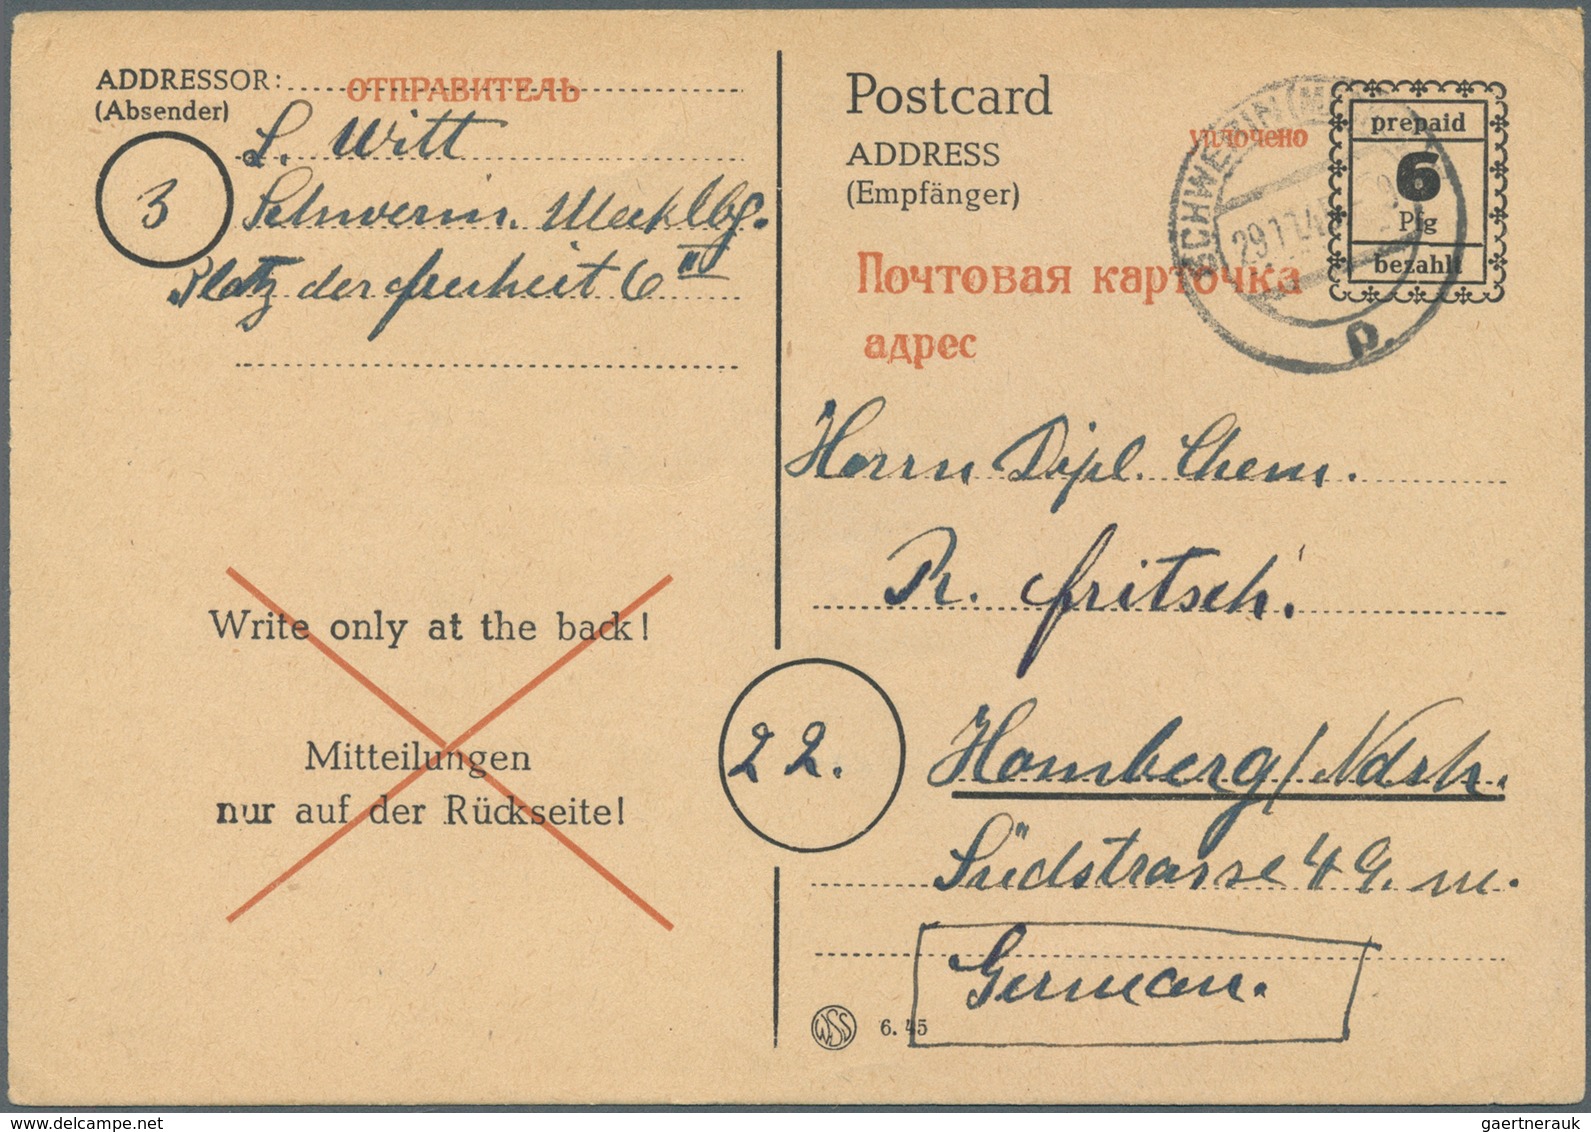 ADDRESSOR:
ОТПРАВИТЕЛЬ
(Absender)
L. Witt
3
Schwerin. Mecklbg.
Platz der freiheit 6 III
Write only at the back!
Mitteilungen
nur auf der Rückseite!
Postcard
ADDRESS
(Empfänger)
уплочено
prepaid
6
Pfg
bezahlt
SCHWERIN (M
29.11.45
p.
Почтовая карточка
адрес
Herrn Dipl. Chem.
R. fritsch.
22.
Homberg/Ndrh.
Südstrasse 49.
German.
WSS
6. 45
gaertnerauk